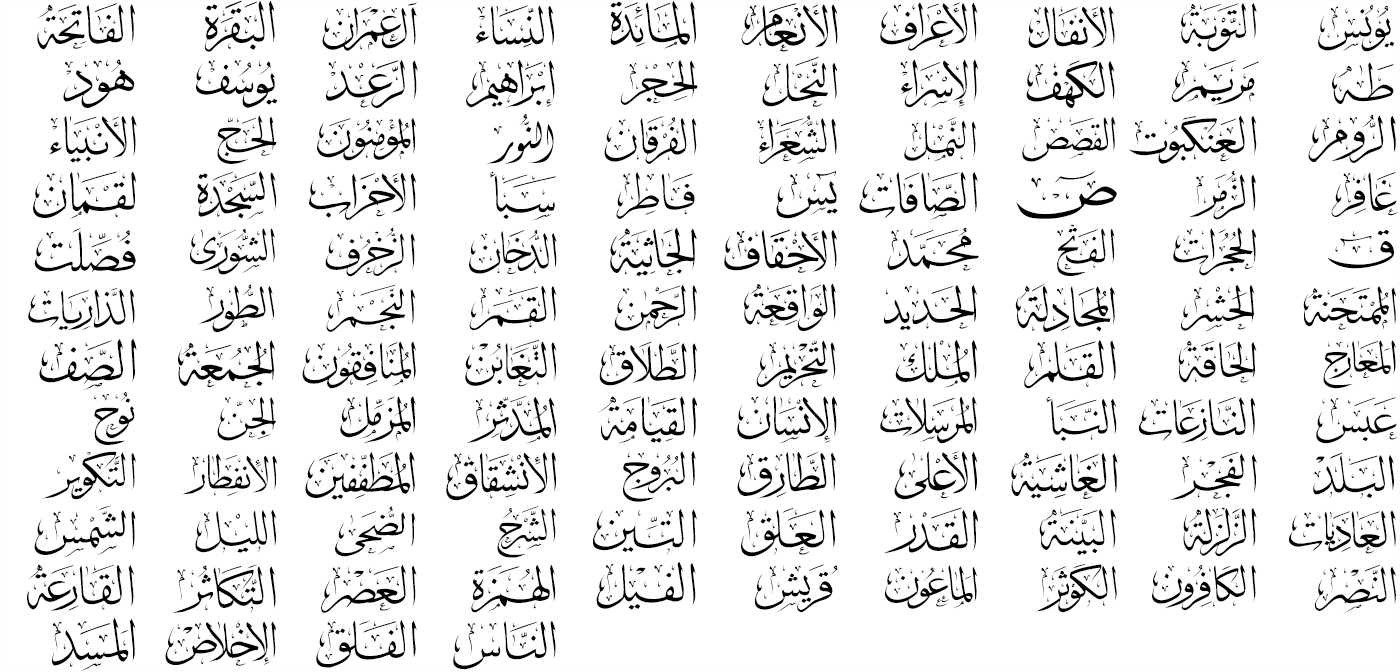 الفَاتِحَة البَقَرَة آل عِمْرَان النِّسَاء المَائِدَة الأَنْعَام الأَعْرَاف الأَنفَال التَّوْبَة يُونُس
هُود يُوسُف الرَّعْد إِبْرَاهِيم الحِجْر النَّحْل الإِسْرَاء الكَهْف مَرْيَم طه
الأَنْبِيَاء الحَجّ المُؤْمِنُون النُّور الفُرْقَان الشُّعَرَاء النَّمْل القَصَص العَنكَبُوت الرُّوم
لُقْمَان السَّجْدَة الأَحْزَاب سَبَأ فَاطِر يس الصَّافَات ص الزُّمَر غَافِر
فُصِّلَت الشُّورَى الزُّخْرُف الدُّخَان الجَاثِيَة الأَحْقَاف مُحَمَّد الفَتْح الحُجُرَات ق
الذَّارِيَات الطُّور النَّجْم القَمَر الرَّحْمَن الوَاقِعَة الحَدِيد المُجَادِلَة الحَشْر المُمْتَحِنَة
الصَّف الجُمُعَة المُنَافِقُون التَّغَابُن الطَّلَاق التَّحْرِيم المُلْك القَلَم الحَاقَّة المَعَارِج
نُوح الجِنّ المُزَّمِّل المُدَّثِّر القِيَامَة الإِنْسَان المُرْسَلَات النَّبَأ النَّازِعَات عَبَسَ
التَّكْوِير الانْفِطَار المُطَفِّفِين الانْشِقَاق البُرُوج الطَّارِق الأَعْلَى الغَاشِيَة الفَجْر البَلَد
الشَّمْس اللَّيْل الضُّحَى الشَّرْح التِّين العَلَق القَدْر البَيِّنَة الزَّلْزَلَة العَادِيَات
القَارِعَة التَّكَاثُر العَصْر الهُمَزَة الفِيل قُرَيْش المَاعُون الكَوْثَر الكَافِرُون النَّصْر
المَسَد الإِخْلَاص الفَلَق النَّاس